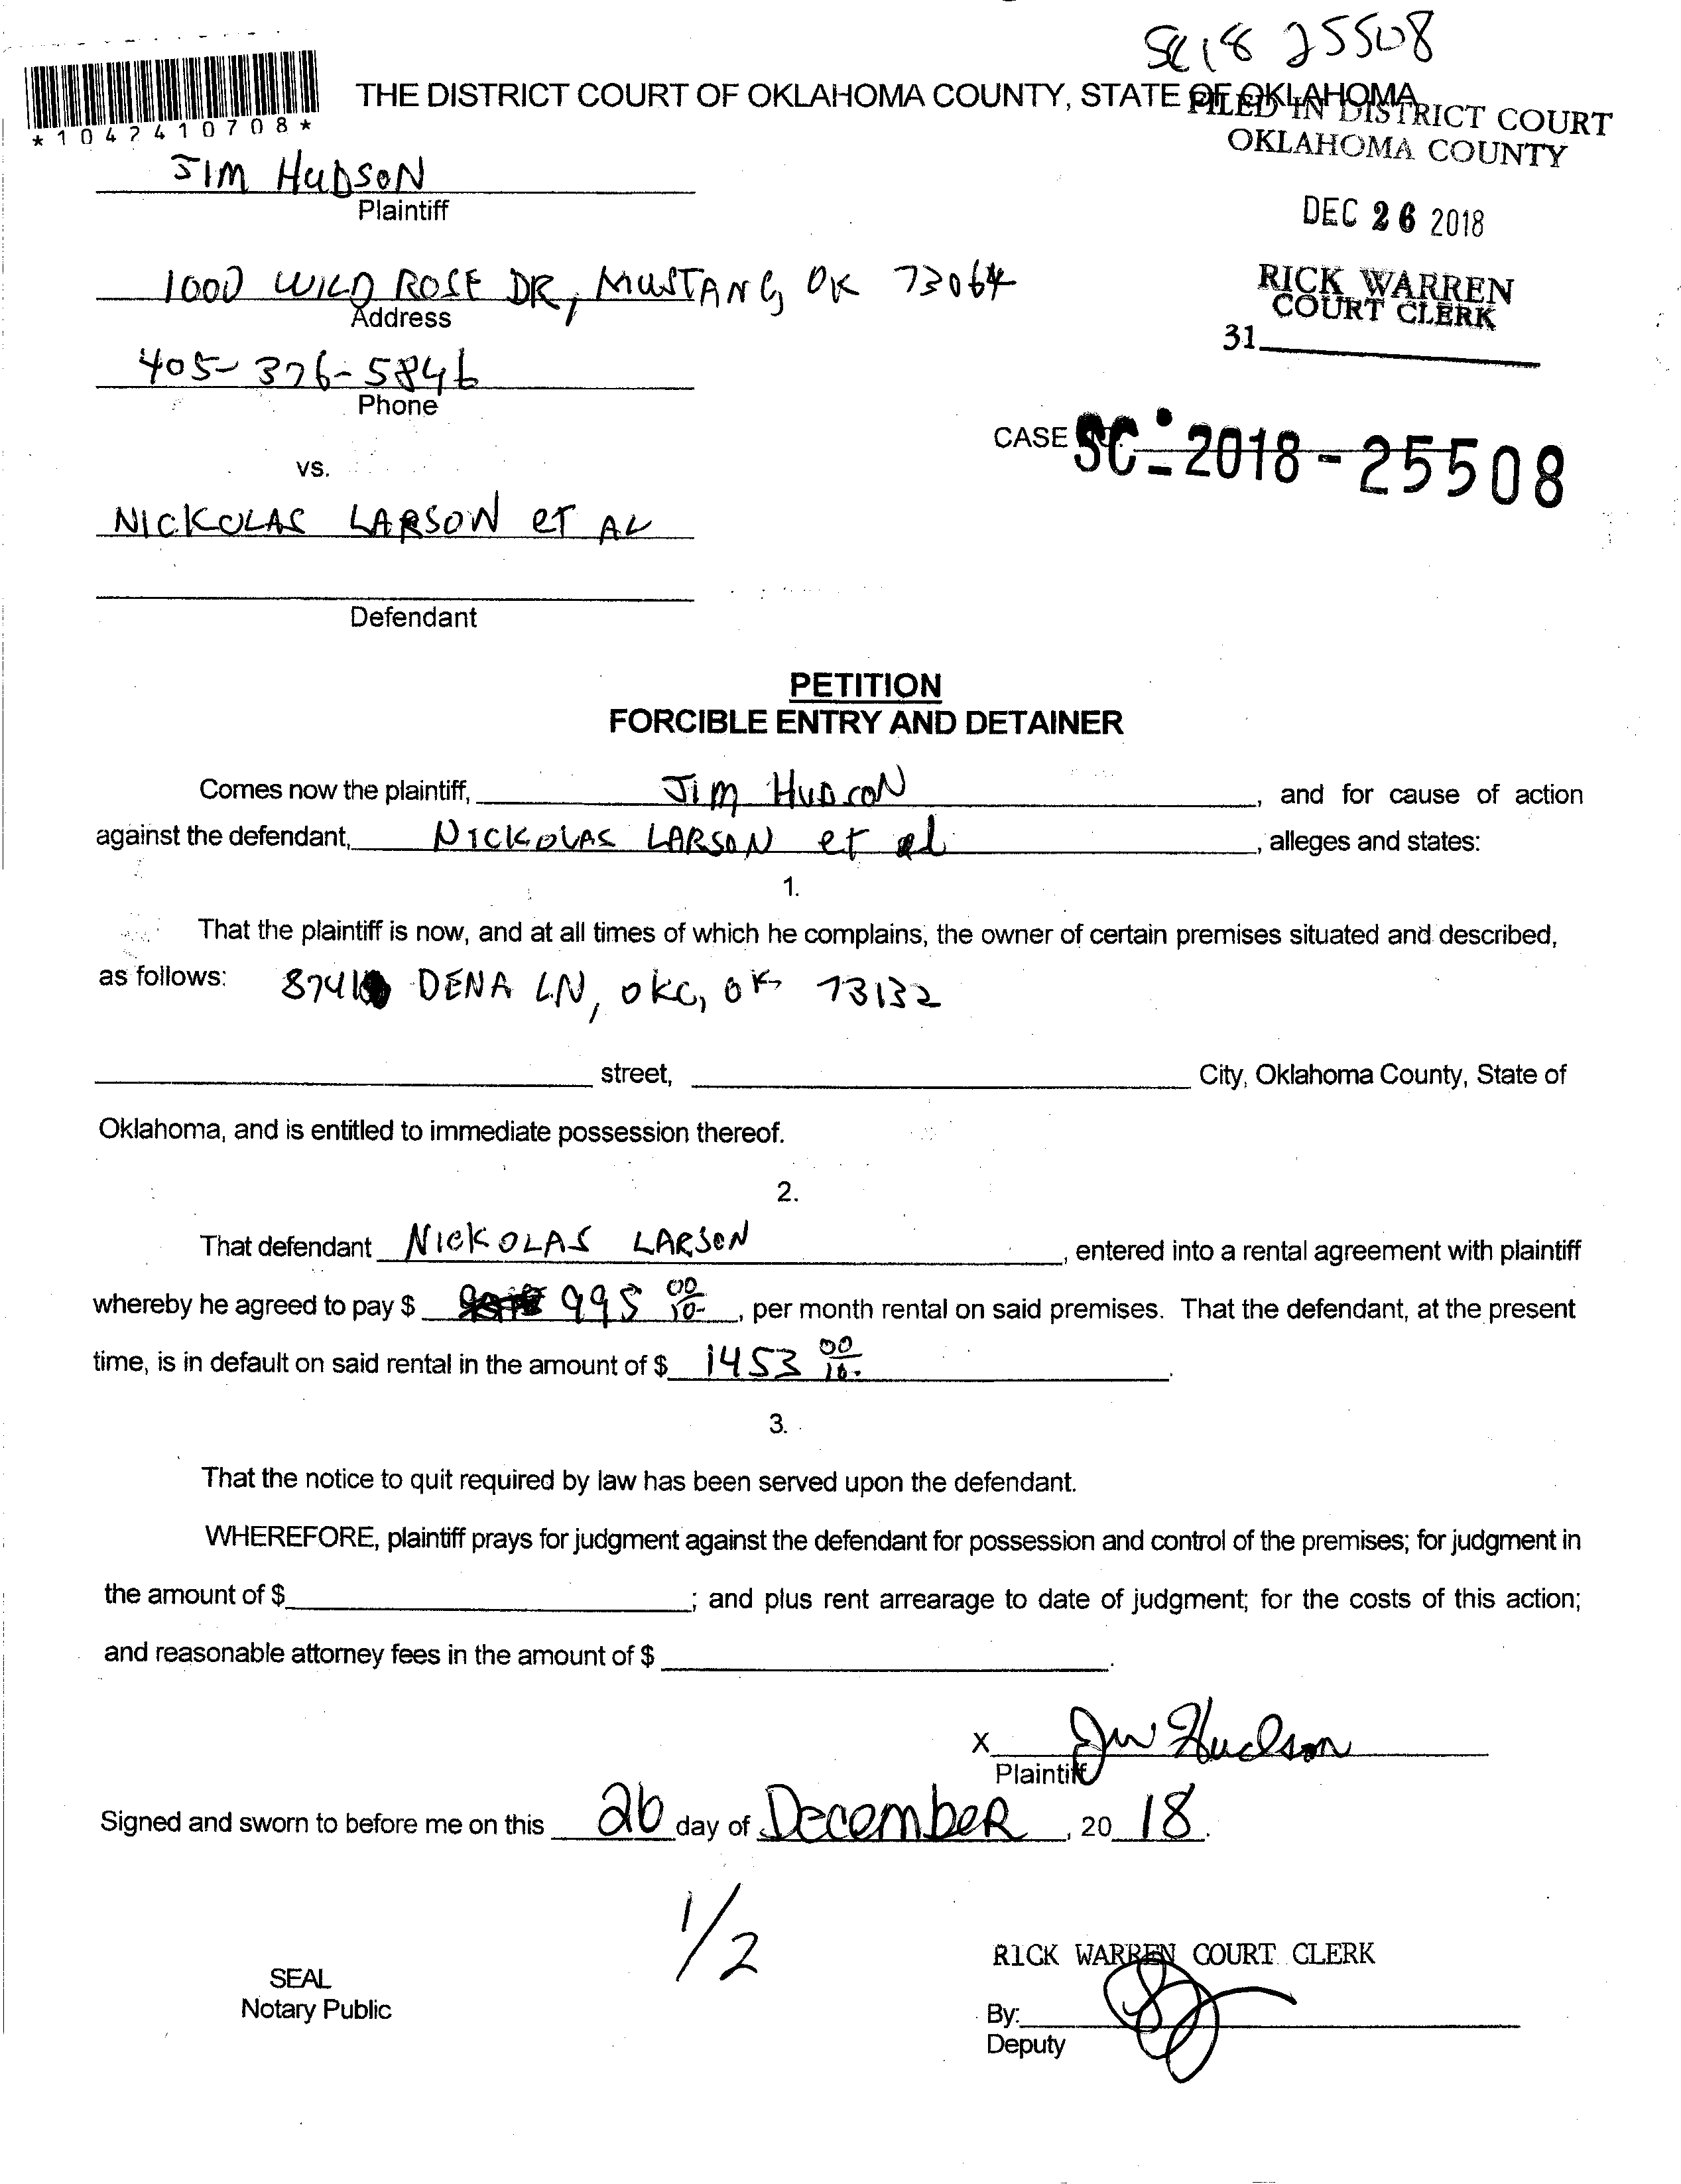 SC18 25508
THE DISTRICT COURT OF OKLAHOMA COUNTY, STATE OF OKLAHOMA
FILED IN DISTRICT COURT
OKLAHOMA COUNTY
*1042410708*
JIM HUDSON
Plaintiff
DEC 26 2018
1000 WILD ROSE DR, MUSTANG, OK 73064
Address
RICK WARREN
COURT CLERK
31
405-376-5846
Phone
CASE NO. SC-2018-25508
vs.
NICKOLAS LARSON ET AL
Defendant
PETITION
FORCIBLE ENTRY AND DETAINER
Comes now the plaintiff, JIM HUDSON, and for cause of action
against the defendant, NICKOLAS LARSON et al, alleges and states:
1.
That the plaintiff is now, and at all times of which he complains, the owner of certain premises situated and described,
as follows: DENA LN, OKC, OK 73132
street, City, Oklahoma County, State of
Oklahoma, and is entitled to immediate possession thereof.
2.
That defendant NICKOLAS LARSON, entered into a rental agreement with plaintiff
whereby he agreed to pay $ 995 00/10-, per month rental on said premises. That the defendant, at the present
time, is in default on said rental in the amount of $ 1453 00/10-.
3.
That the notice to quit required by law has been served upon the defendant.
WHEREFORE, plaintiff prays for judgment against the defendant for possession and control of the premises; for judgment in
the amount of $ ; and plus rent arrearage to date of judgment; for the costs of this action;
and reasonable attorney fees in the amount of $ .
X Jim Hudson
Plaintiff
Signed and sworn to before me on this 26 day of December, 20 18.
1/2
RICK WARREN COURT CLERK
SEAL
Notary Public
By:
Deputy